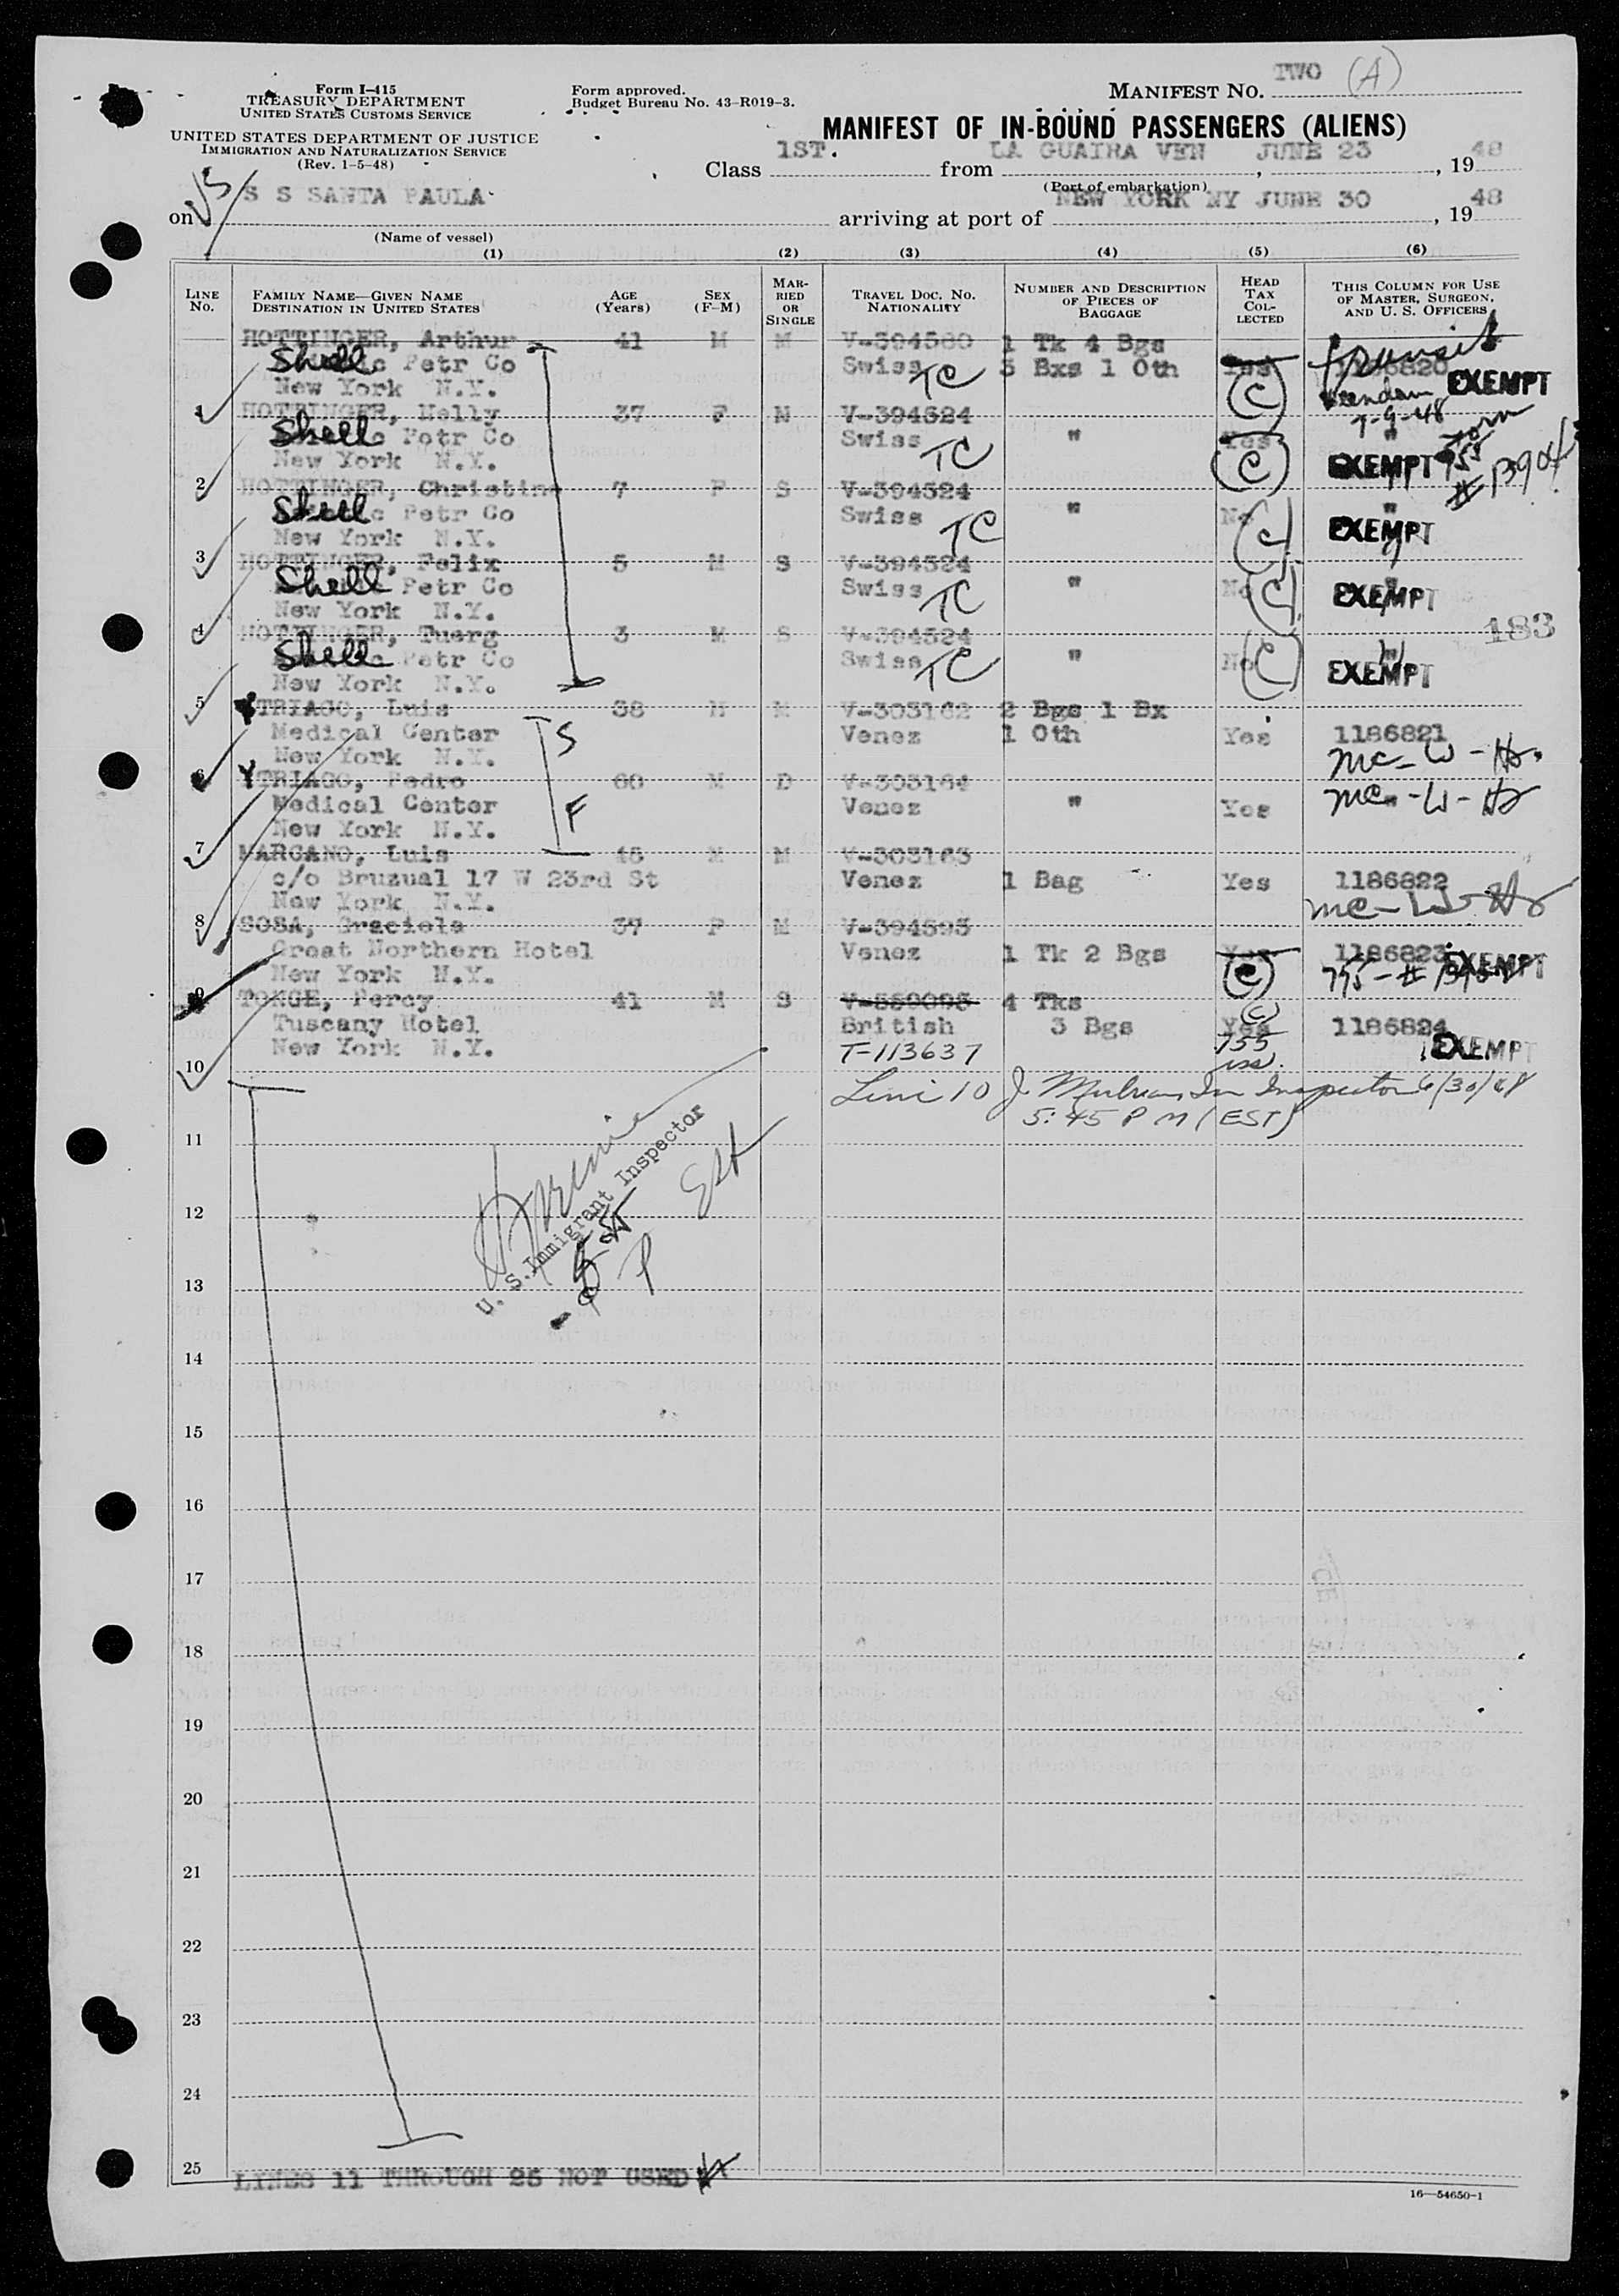 Form I-415
TREASURY DEPARTMENT
UNITED STATES CUSTOMS SERVICE
UNITED STATES DEPARTMENT OF JUSTICE
IMMIGRATION AND NATURALIZATION SERVICE
(Rev. 1-5-48)
Form approved.
Budget Bureau No. 43-R019-3.
MANIFEST NO. TWO (A)
MANIFEST OF IN-BOUND PASSENGERS (ALIENS)
Class 1ST. from LA GUAIRA VEN JUNE 23, 19 48
(Port of embarkation)
on S S SANTA PAULA arriving at port of NEW YORK NY JUNE 30, 19 48
(Name of vessel)
(1) (2) (3) (4) (5) (6)
LINE NO. FAMILY NAME—GIVEN NAME DESTINATION IN UNITED STATES AGE (Years) SEX (F-M) MARRIED OR SINGLE TRAVEL DOC. NO. NATIONALITY NUMBER AND DESCRIPTION OF PIECES OF BAGGAGE HEAD TAX COLLECTED THIS COLUMN FOR USE OF MASTER, SURGEON, AND U. S. OFFICERS
HOTTINGER, Arthur 41 M M V-394580 1 Tk 4 Bgs transit
Shell Petr Co Swiss TC 3 Bxs 1 Oth Yes 1186820
New York N.Y. (C) EXEMPT
7-9-48
1 HOTTINGER, Nelly 37 F M V-394524
Shell Petr Co Swiss TC " Yes "
New York N.Y. (C) EXEMPT
2 HOTTINGER, Christine 7 F S V-394524
Shell Petr Co Swiss TC " No "
New York N.Y. (C) EXEMPT
3 HOTTINGER, Felix 5 M S V-394524
Shell Petr Co Swiss TC " No "
New York N.Y. (C) EXEMPT
183
4 HOTTINGER, Tuerg 3 M S V-394524
Shell Petr Co Swiss TC " No "
New York N.Y. (C) EXEMPT
5 YTRIAGO, Luis 38 M M V-303162 2 Bgs 1 Bx
Medical Center S Venez 1 Oth Yes 1186821
New York N.Y.
6 YTRIAGO, Pedro 60 M D V-303164
Medical Center F Venez " Yes "
New York N.Y.
7 MARCANO, Luis 48 M M V-303163
c/o Bruzual 17 W 23rd St Venez 1 Bag Yes 1186822
New York N.Y.
8 SOSA, Graciela 37 F M V-394593
Great Northern Hotel Venez 1 Tk 2 Bgs Yes 1186823 EXEMPT
New York N.Y. (C)
9 TONGE, Percy 41 M S V-589095 4 Tks (C)
Tuscany Hotel British 3 Bgs Yes 1186824
New York N.Y. T-113637 755 EXEMPT
10
Line 10 J. Inspector 6/30/48
5:45 P M (EST)
11
U. S. Immigrant Inspector
Est
12
P
13
14
15
16
17
18
19
20
21
22
23
24
25 LINES 11 THROUGH 25 NOT USED
16—54650-1